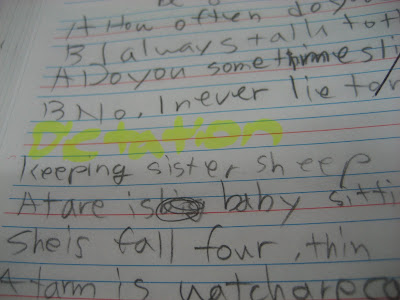 A How often do y
B I always talk to t
A Do you somethimes li
B No, I never lie to
Dictation
Keeping sister sheep
Atare is baby sitti
She is fall four, thin
A tarm is watch